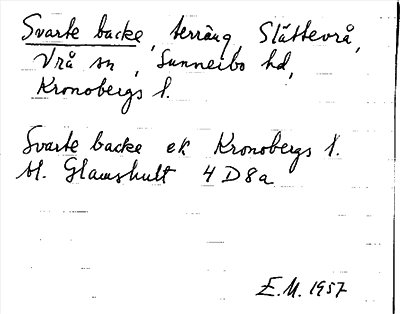 Svarte backe, terräng, Slättevrå,
Vrå sn, Sunnerbo hd,
Kronobergs l.
Svarte backe ek Kronobergs l.
bl. Glamshult 4D8a
E.M. 1957